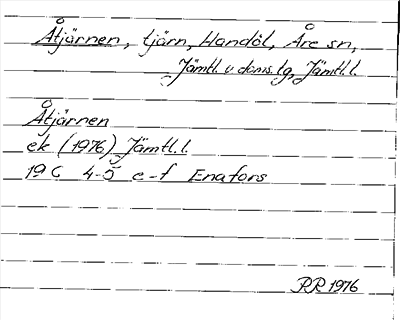 Åtjärnen, tjärn, Handöl, Åre sn,
Jämtl. v. doms. tg, Jämtl. l.
Åtjärnen
ek (1976) Jämtl. l.
19 C 4-5 e-f Enafors
RR 1976